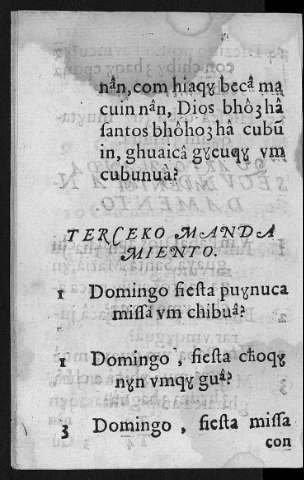 nâ̂n, com hiaqɣ becâ ma
cuin nân, Dios bhôȝhâ
ſantos bhôhoȝhâ cubũ
in, ghuaicâ gɣcuqɣ vm
cubunua?
TERCERO MANDA
MIENTO.
1 Domingo fieſta puɣnuca
miſſa vm chibuâ?
1 Domingo, fieſta cħoqɣ
nɣn vmqɣ guâ?
3 Domingo, fieſta miſſa
con